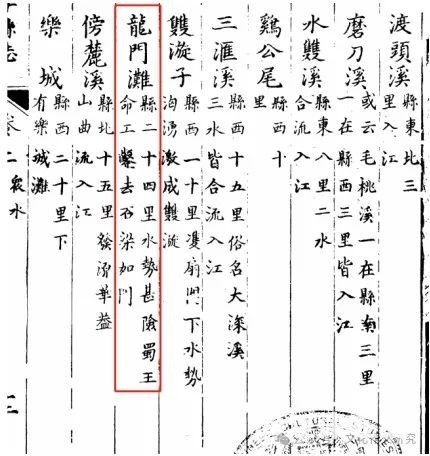 渡頭溪 縣東北三
里入江
磨刀溪 或云毛桃溪一在縣南三里
一在縣西三里皆入江
水雙溪 縣東八里二水
合流入江
鷄公尾 縣西十
里
三滙溪 縣西十五里俗名大深溪
三水皆合流入江
雙漩子 縣西一十里漫扇門下水勢
洶湧激成雙漩
龍門灘 縣二十四里水勢甚險蜀王
命工鑿去石梁如門
傍麓溪 縣北十五里發源華蓥
山曲流入江
樂城 縣西二十里下
有樂城灘
縣志 卷二 衆水